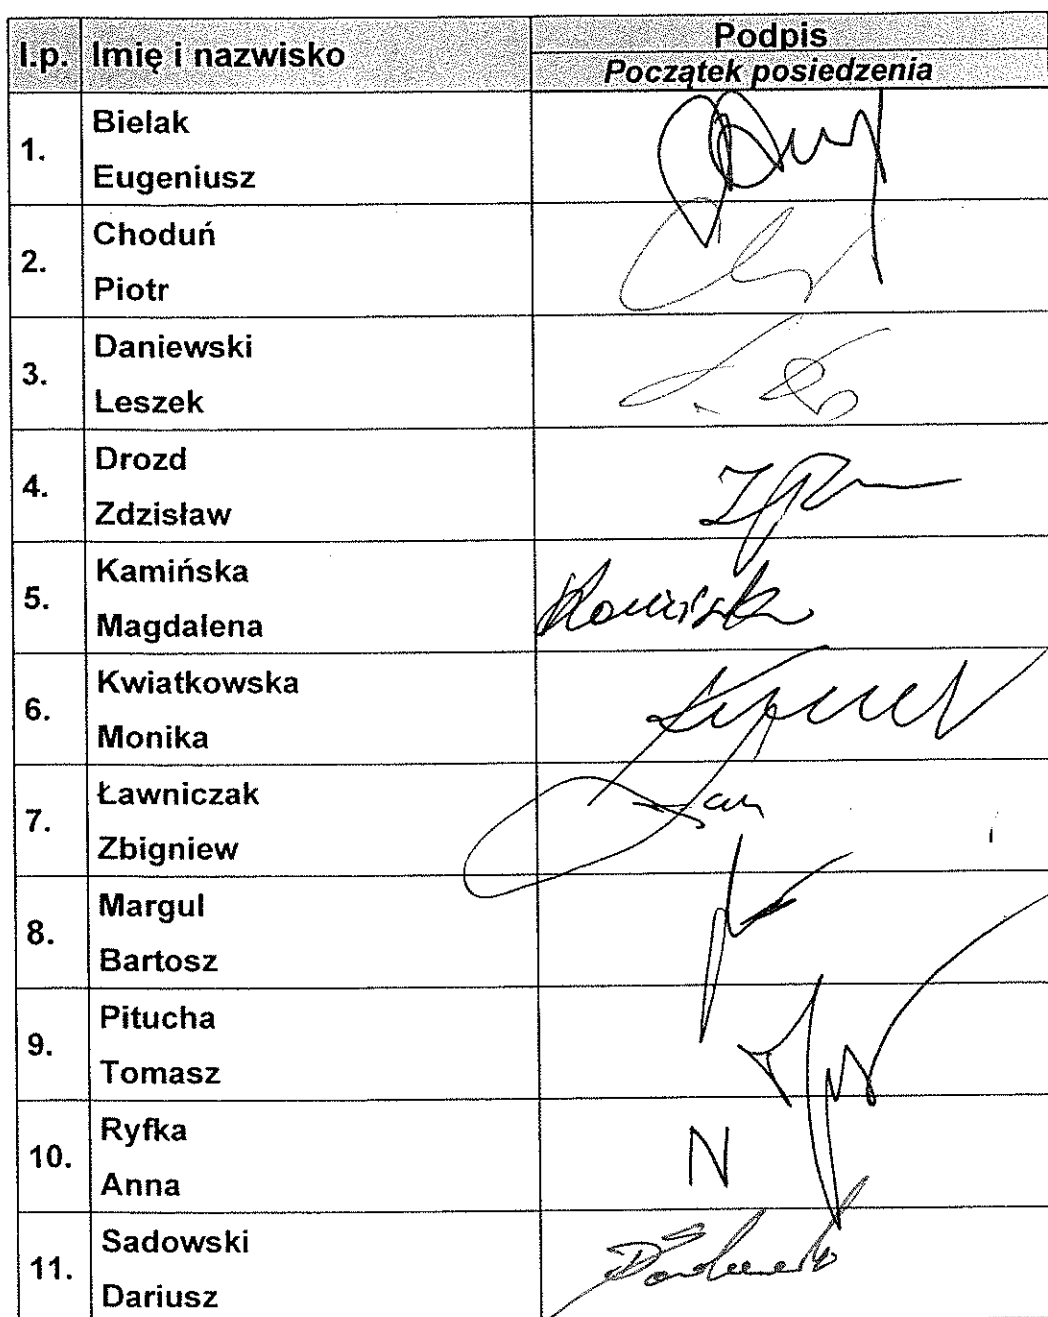 l.p. Imię i nazwisko Podpis
Początek posiedzenia
1. Bielak
Eugeniusz
2. Choduń
Piotr
3. Daniewski
Leszek
4. Drozd
Zdzisław
5. Kamińska
Magdalena
6. Kwiatkowska
Monika
7. Ławniczak
Zbigniew
8. Margul
Bartosz
9. Pitucha
Tomasz
10. Ryfka
Anna
N
11. Sadowski
Dariusz